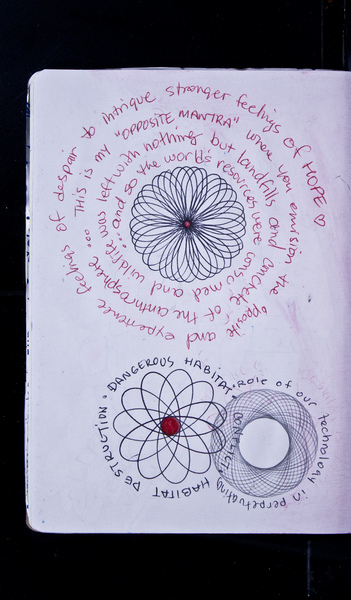 ...and so the world's resources were consumed and wildlife was left with nothing but landfills and concrete of the anthrosphere...
THIS is my "OPPOSITE MANTRA" where you envision the opposite and experience feelings of despair to intrique stronger feelings of HOPE ♡
DANGEROUS HABITAT • role of our technology in perpetuating
HABITAT DESTRUCTION •